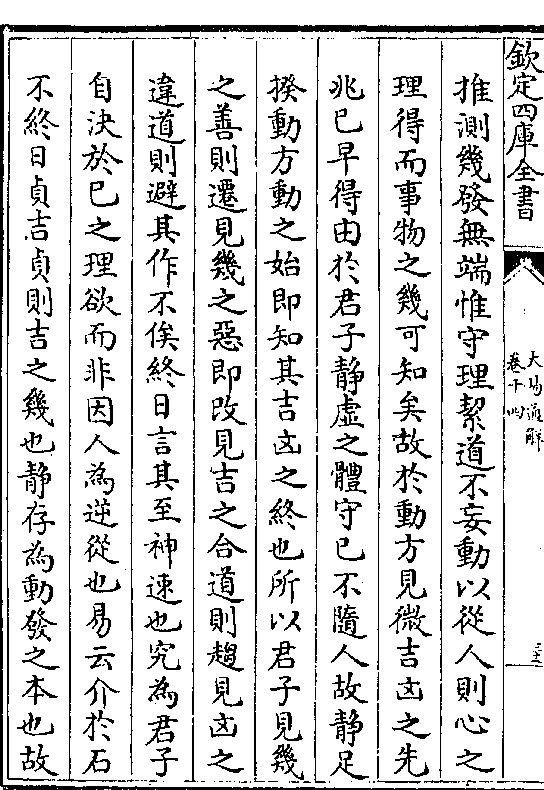 欽定四庫全書
大易通解
卷十四
推測幾發無端惟守理絜道不妄動以從人則心之
理得而事物之幾可知矣故於動方見微吉凶之先
兆已早得由於君子靜虛之體守已不隨人故靜足
揆動方動之始即知其吉凶之終也所以君子見幾
之善則遷見幾之惡即改見吉之合道則趨見凶之
違道則避其作不俟終日言其至神速也究為君子
自決於已之理欲而非因人為逆從也易云介於石
不終日貞吉貞則吉之幾也靜存為動發之本也故